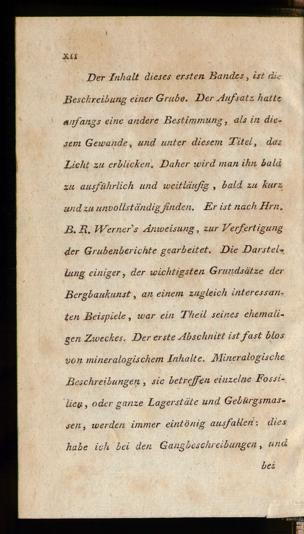 XII
Der Inhalt dieses ersten Bandes, ist die
Beschreibung einer Grube. Der Aufsatz hatte
anfangs eine andere Bestimmung, als in die-
sem Gewande, und unter diesem Titel, das
Licht zu erblicken. Daher wird man ihn bald
zu ausführlich und weitläufig, bald zu kurz
und zu unvollständig finden. Er ist nach Hrn.
B. R. Werner's Anweisung, zur Verfertigung
der Grubenberichte gearbeitet. Die Darstel-
lung einiger, der wichtigsten Grundsätze der
Bergbaukunst, an einem zugleich interessan-
ten Beispiele, war ein Theil seines ehemali-
gen Zweckes. Der erste Abschnitt ist fast blos
von mineralogischem Inhalte. Mineralogische
Beschreibungen, sie betreffen einzelne Fossi-
lien, oder ganze Lagerstäte und Gebürgsmas-
sen, werden immer eintönig ausfallen: dies
habe ich bei den Gangbeschreibungen, und
bei